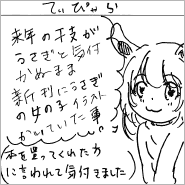 てぃびゃら
来年の干支が
うさぎと気付
かぬまま
新刊にうさぎ
の女の子イラスト
かいていた事
本を買ってくれた方
に言われて気付きました